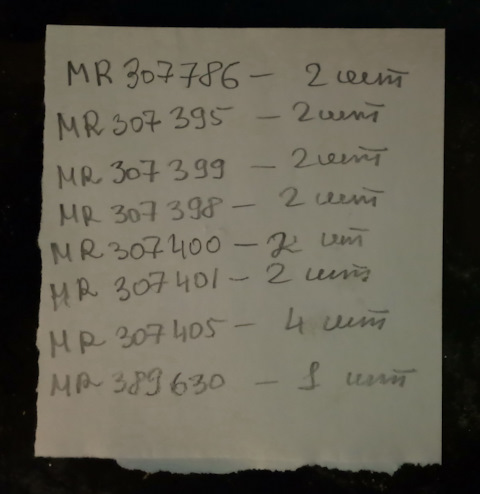 MR 307786 – 2 шт
MR 307395 – 2 шт
MR 307399 – 2 шт
MR 307398 – 2 шт
MR 307400 – 2 шт
MR 307401 – 2 шт
MR 307405 – 4 шт
MR 389630 – 1 шт